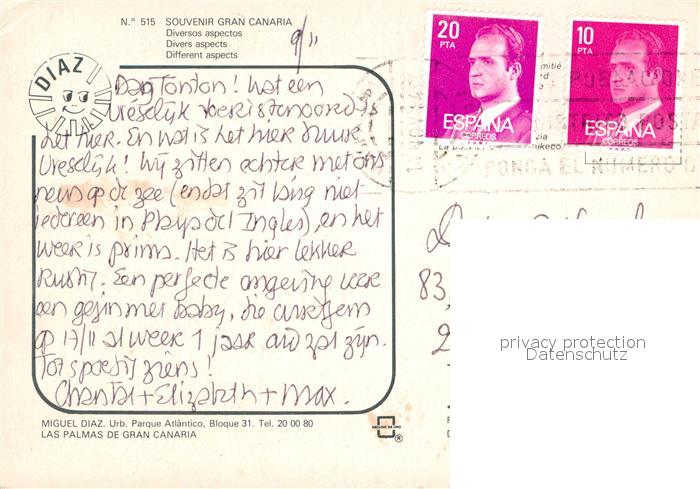 N.º 515 SOUVENIR GRAN CANARIA
Diversos aspectos
Divers aspects
Different aspects
9/11
DIAZ
20
PTA
ESPAÑA
CORREOS
10
PTA
ESPAÑA
CORREOS
PONGA EL NUMERO D
Dag Tonton! Wat een
vreselijk toeristenoord is
het hier. En wat is het hier duur
vreselijk! Wij zitten echter met ons
neus op de zee (en dat zit lang niet
iedereen in Playa del Ingles), en het
weer is prima. Het is hier lekker
rustig. Een perfecte omgeving voor
een gezin met baby, die
op 17/11 al weer 1 jaar oud zal zijn.
Tot spoedig ziens!
Chantal + Elizabeth + Max.
83,
2
privacy protection
Datenschutz
MIGUEL DIAZ. Urb. Parque Atlántico, Bloque 31. Tel. 20 00 80
LAS PALMAS DE GRAN CANARIA